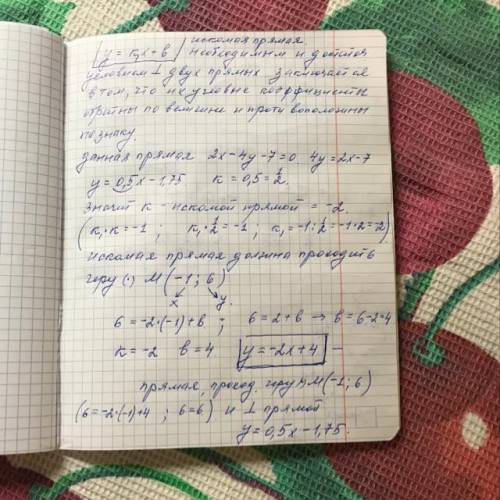 y = k₁x + b | искомая прямая
необходимым и достаточ
условием ⊥ двух прямых заключается
в том, что их угловые коэффициенты
обратны по величине и противоположны
по знаку
данная прямая 2x-4y-7=0 4y=2x-7
y=0,5x-1,75 k=0,5=½
значит k - искомой прямой = -2
(k₁·k=-1 ; k₁·½=-1 ; k₁=-1:½=-1·2=-2)
искомая прямая должна проходить
через (·) M(-1; 6)
x y
6=-2·(-1)+b ; 6=2+b → b=6-2=4
k=-2 b=4 y=-2x+4 —
прямая, проход. через M(-1; 6)
(6=-2·(-1)+4 ; 6=6) и ⊥ прямой
y=0,5x-1,75.